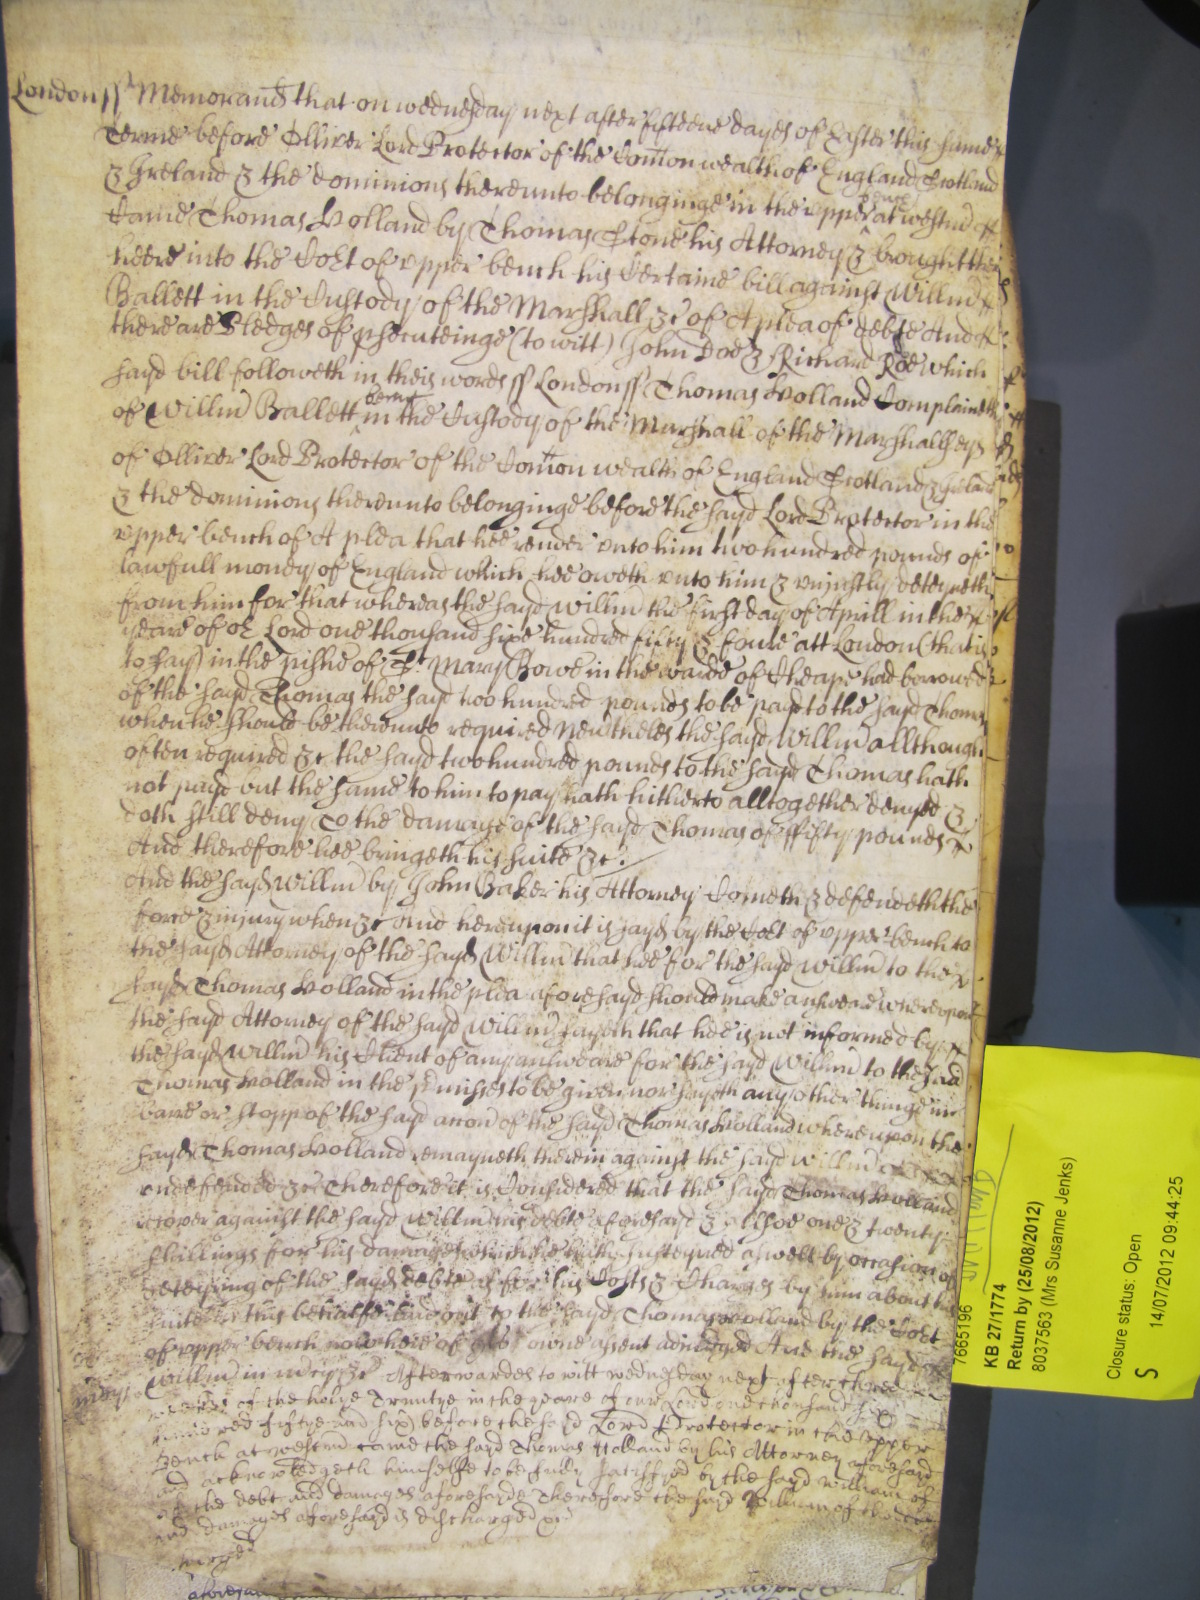 London ss Memorand that on wednesday next after fifteene dayes of Easter this same
Terme before Olliver Lord Protector of the Comon wealth of England Scotland
& Ireland & the dominions thereunto belonginge in the upper bench at westmr
Came Thomas Holland by Thomas Stone his Attorney & brought then
heere into the Cort of upper bench his Certaine bill against Willm
Ballett in the Custody of the Marshall &c of A plea of debte And
there are Pledges of prosecuteinge (to witt) John Doe & Richard Roe which
sayd bill followeth in theis words ss London ss Thomas Holland Complaineth
of Willm Ballett being in the Custody of the Marshall of the Marshallsey
of Olliver Lord Protector of the Comon wealth of England Scotland & Ireland
& the dominions thereunto belonginge before the sayd Lord Protector in the
upper bench of A plea that hee render unto him two hundred pounds of
lawfull money of England which hee oweth unto him & unjustly deteyneth
from him for that whereas the sayd Willm the first day of Aprill in the
yeare of or Lord one thousand sixe hundred fifty & foure att London (that is
to say) in the pishe of St Mary Bowe in the warde of Cheape had borrowed
of the sayd Thomas the sayd two hundred pounds to be payd to the sayd Thomas
when he should be thereunto required Nevtheles the sayd Willm allthough
often required &c the sayd two hundred pounds to the sayd Thomas hath
not payd but the same to him to pay hath hitherto alltogether denyed &
doth still deny To the damage of the sayd Thomas of ffifty pounds
And therefore hee bringeth his suite &c
And the sayd Willm by John Baker his Attorney Cometh & defendeth the
force & injury when &c And hereupon it is sayd by the Cort of upper bench to
the sayd Attorney of the sayd Willm that hee for the sayd Willm to the
sayd Thomas Holland in the plea aforesayd should make answeare whereupon
the sayd Attorney of the sayd Willm sayeth that hee is not informed by
the sayd Willm his Client of any answeare for the sayd Willm to the said
Thomas Holland in the pmisses to be given nor sayeth any other thinge in
barre or stopp of the sayd accon of the sayd Thomas Holland whereupon the
sayd Thomas Holland remayneth therein against the sayd Willm
undefended &c Therefore it is Considered that the sayd Thomas Holland
recover against the sayd Willm his debte aforesayd & allsoe one & twenty
shillings for his damages which he hath susteyned aswell by occasion of
deteyning of the sayd debte as for his Costs & Charges by him about his
suite in this behalfe laid out to the sayd Thomas Holland by the Cort
of upper bench now heere of his owne assent adiudged And the sayd
Willm in mcy &c Afterwardes to witt wednesday next after three
weekes of the holye Trinitye in the yeare of our Lord one thousand six
hundred fiftye and six before the sayd Lord Protector in the upper
Bench at westmr came the sayd Thomas Holland by his Attorney aforesayd
and acknowledgeth himselfe to be fully satisfyed by the sayd William of
the debt and damages aforesayd Therefore the sayd William of the debt
and damages aforesayd is discharged
KB 27/1774
Return by (25/08/2012)
8037563 (Mrs Susanne Jenks)
7665196
Closure status: Open
S 14/07/2012 09:44:25